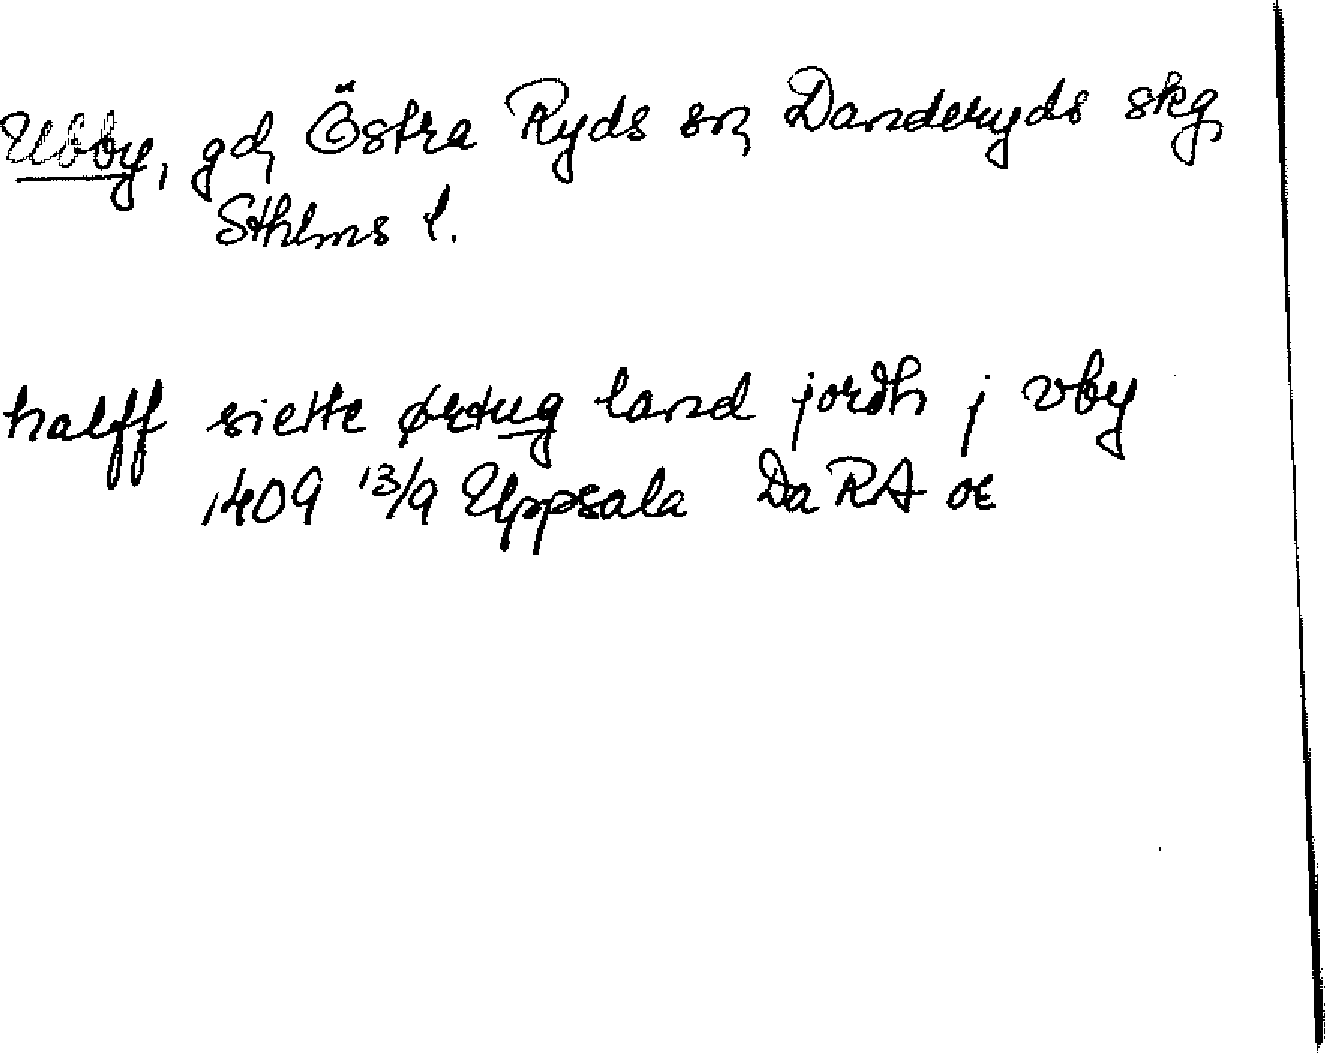 Ubby, gd, Östra Ryds sn, Danderyds skg,
Sthlms l.
halff siette ørtug land jordh j vby
1409 13/9 Uppsala Da RA or